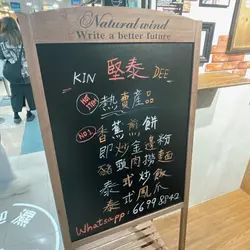 Natural wind
Write a better future
KIN 堅泰 DEE
HOT ITEM
熱賣產品
NO.1
香蕉煎餅
即炒金邊粉
豬頸肉撈麵
泰式炒飯
泰式鳳爪
Whatsapp: 6699 8942